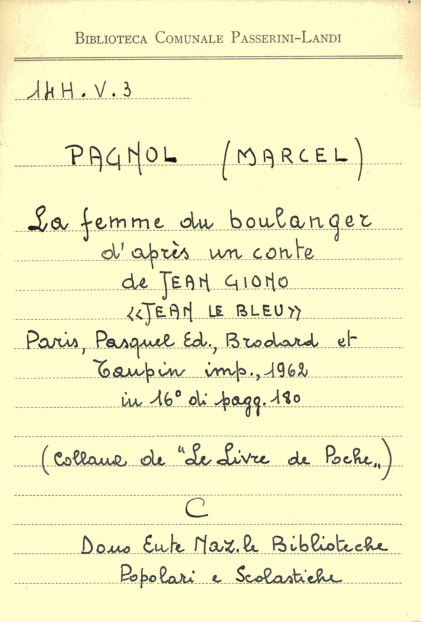 BIBLIOTECA COMUNALE PASSERINI-LANDI
14 H. V. 3
PAGNOL (MARCEL)
La femme du boulanger
d'après un conte
de JEAN GIONO
«JEAN LE BLEU»
Paris, Pasquel Ed., Brodard et
Taupin imp., 1962
in 16° di pagg. 180
(Collana de "Le Livre de Poche„)
C
Dono Ente Naz.le Biblioteche
Popolari e Scolastiche